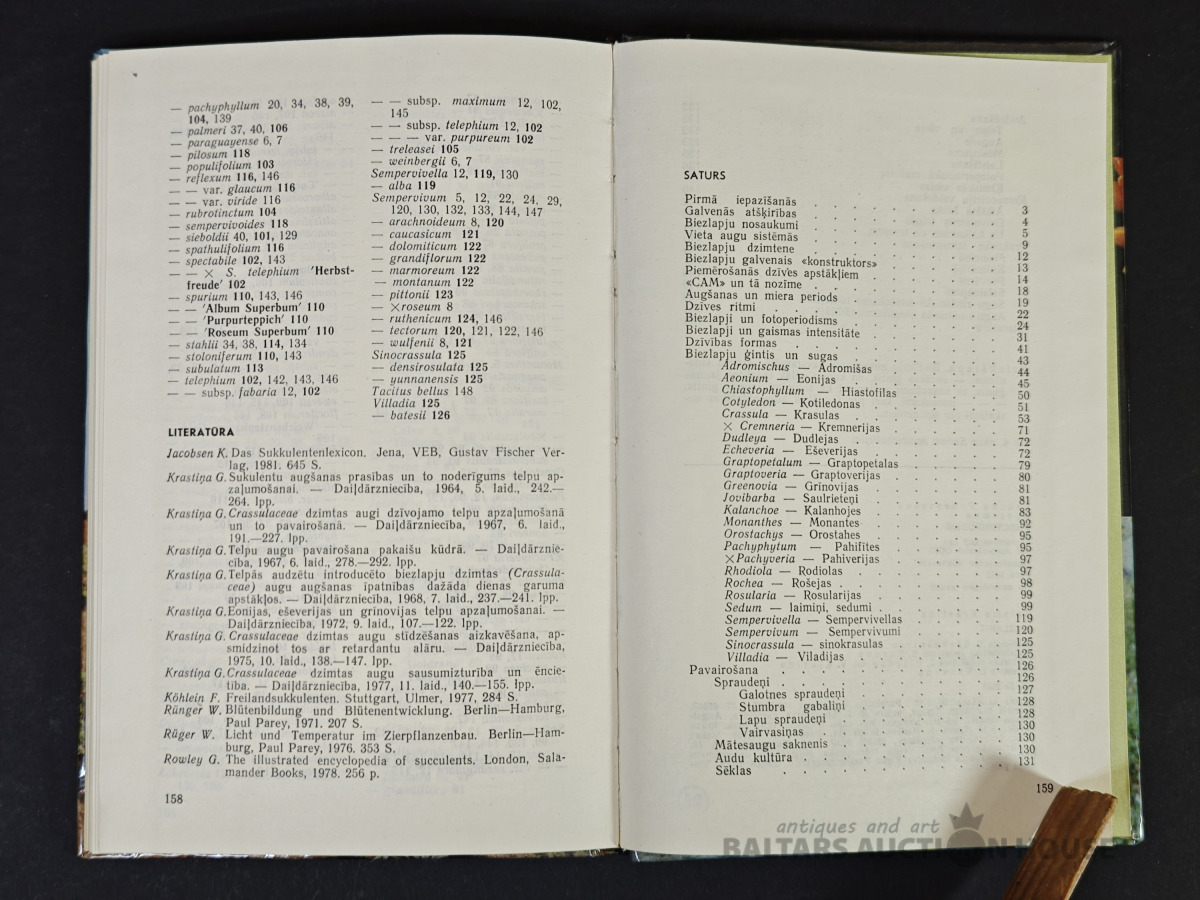 — pachyphyllum 20, 34, 38, 39,
104, 139
— palmeri 37, 40, 106
— paraguayense 6, 7
— pilosum 118
— populifolium 103
— reflexum 116, 146
— — var. glaucum 116
— — var. viride 116
— rubrotinctum 104
— sempervivoides 118
— sieboldii 40, 101, 129
— spathulifolium 116
— spectabile 102, 143
— — × S. telephium 'Herbst-
freude' 102
— spurium 110, 143, 146
— — 'Album Superbum' 110
— — 'Purpurteppich' 110
— — 'Roseum Superbum' 110
— stahlii 34, 38, 114, 134
— stoloniferum 110, 143
— subulatum 113
— telephium 102, 142, 143, 146
— — subsp. fabaria 12, 102
— — subsp. maximum 12, 102,
145
— — subsp. telephium 12, 102
— — — var. purpureum 102
— treleasei 105
— weinbergii 6, 7
Sempervivella 12, 119, 130
— alba 119
Sempervivum 5, 12, 22, 24, 29,
120, 130, 132, 133, 144, 147
— arachnoideum 8, 120
— caucasicum 121
— dolomiticum 122
— grandiflorum 122
— marmoreum 122
— montanum 122
— pittonii 123
— ×roseum 8
— ruthenicum 124, 146
— tectorum 120, 121, 122, 146
— wulfenii 8, 121
Sinocrassula 125
— densirosulata 125
— yunnanensis 125
Tacitus bellus 148
Villadia 125
— batesii 126
LITERATŪRA
Jacobsen K. Das Sukkulentenlexicon. Jena, VEB, Gustav Fischer Ver-
lag, 1981. 645 S.
Krastiņa G. Sukulentu augšanas prasības un to noderīgums telpu ap-
zaļumošanai. — Daiļdārzniecība, 1964, 5. laid., 242.—
264. lpp.
Krastiņa G. Crassulaceae dzimtas augi dzīvojamo telpu apzaļumošanā
un to pavairošana. — Daiļdārzniecība, 1967, 6. laid.,
191.—227. lpp.
Krastiņa G. Telpu augu pavairošana pakaišu kūdrā. — Daiļdārznie-
cība, 1967, 6. laid., 278.—292. lpp.
Krastiņa G. Telpās audzētu introducēto biezlapju dzimtas (Crassula-
ceae) augu augšanas īpatnības dažāda dienas garuma
apstākļos. — Daiļdārzniecība, 1968, 7. laid., 237.—241. lpp.
Krastiņa G. Eonijas, eševerijas un grīnovijas telpu apzaļumošanai. —
Daiļdārzniecība, 1972, 9. laid., 107.—122. lpp.
Krastiņa G. Crassulaceae dzimtas augu stīdzēšanas aizkavēšana, ap-
smidzinot tos ar retardantu alāru. — Daiļdārzniecība,
1975, 10. laid., 138.—147. lpp.
Krastiņa G. Crassulaceae dzimtas augu sausumizturība un ēncie-
tība. — Daiļdārzniecība, 1977, 11. laid., 140.—155. lpp.
Köhlein F. Freilandsukkulenten. Stuttgart, Ulmer, 1977, 284 S.
Rünger W. Blütenbildung und Blütenentwicklung. Berlin—Hamburg,
Paul Parey, 1971. 207 S.
Rüger W. Licht und Temperatur im Zierpflanzenbau. Berlin—Ham-
burg, Paul Parey, 1976. 353 S.
Rowley G. The illustrated encyclopedia of succulents. London, Sala-
mander Books, 1978. 256 p.
158
SATURS
Pirmā iepazīšanās . . . . . . . . 3
Galvenās atšķirības . . . . . . . . 4
Biezlapju nosaukumi . . . . . . . . 5
Vieta augu sistēmās . . . . . . . . 9
Biezlapju dzimtene . . . . . . . . 12
Biezlapju galvenais «konstruktors» . . . . . 13
Piemērošanās dzīves apstākļiem . . . . . . 14
«CAM» un tā nozīme . . . . . . . . 18
Augšanas un miera periods . . . . . . . 19
Dzīves ritmi . . . . . . . . . 22
Biezlapji un fotoperiodisms . . . . . . . 24
Biezlapji un gaismas intensitāte . . . . . . 31
Dzīvības formas . . . . . . . . 41
Biezlapju ģintis un sugas . . . . . . . 43
Adromischus — Adromišas . . . . . . 44
Aeonium — Eonijas . . . . . . . 45
Chiastophyllum — Hiastofilas . . . . . 50
Cotyledon — Kotiledonas . . . . . . 51
Crassula — Krasulas . . . . . . . 53
× Cremneria — Kremnerijas . . . . . . 71
Dudleya — Dudlejas . . . . . . . 72
Echeveria — Eševerijas . . . . . . . 72
Graptopetalum — Graptopetalas . . . . . 79
Graptoveria — Graptoverijas . . . . . . 80
Greenovia — Grīnovijas . . . . . . . 81
Jovibarba — Saulrieteņi . . . . . . . 81
Kalanchoe — Kalanhojes . . . . . . . 83
Monanthes — Monantes . . . . . . . 92
Orostachys — Orostahes . . . . . . . 95
Pachyphytum — Pahifītes . . . . . . 95
×Pachyveria — Pahiverijas . . . . . . 97
Rhodiola — Rodiolas . . . . . . . 97
Rochea — Rošejas . . . . . . . . 98
Rosularia — Rosularijas . . . . . . . 99
Sedum — laimiņi, sedumi . . . . . . 99
Sempervivella — Sempervivellas . . . . . 119
Sempervivum — Sempervivumi . . . . . 120
Sinocrassula — sinokrasulas . . . . . . 125
Villadia — Viladijas . . . . . . . 125
Pavairošana . . . . . . . . . 126
Spraudeņi . . . . . . . . . 126
Galotnes spraudeņi . . . . . . . 127
Stumbra gabaliņi . . . . . . . 128
Lapu spraudeņi . . . . . . . 128
Vairvasiņas . . . . . . . . 130
Mātesaugu saknenis . . . . . . . 130
Audu kultūra . . . . . . . . 130
Sēklas . . . . . . . . . 131
159
antiques and art
BALTARS AUCTION HOUSE